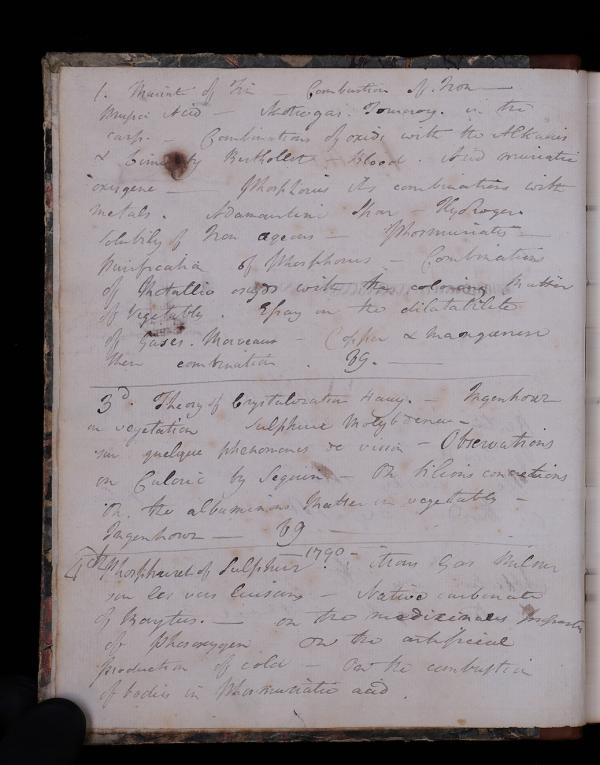 1. Muriat of Tin — Combustion of Iron —
Prussi Acid — Azotic gas. Fourcroy. in the
carp. — Combinations of oxid, with the Alkalies
& Lime by Berthollet — Blood. Acid muriatic
oxigene — Phosphorus its combinations with
metals. Adamantine Spar — Hydrogen
Solubily of Iron ageous — Phosmuriate —
Purification of Phosphorus — Combination
of Metallic oxyds with the coloring Matter
of Vegetably. Essay on the dilatabilite
of Gases. Morveau — Copper & Manganese
their combination. 89. —
3d. Theory of Crystalization Hauy. — Ingenhouz
on vegetation Sulphure Molybdena —
sur quelque phenomenes de vision — Observations
on Caloric by Seguin — On silious concretions
on the albuminous Matter in vegetably —
Ingenhouz — 89 —
4th Phosphuret of Sulphur — 1790. itrous Gas
sur les vers luisans — Native carbonate
of Barytes. — on the medicinal
of phosoxygen on the artificial
production of cold — On the combustion
of bodies in Phosmuriatic acid.